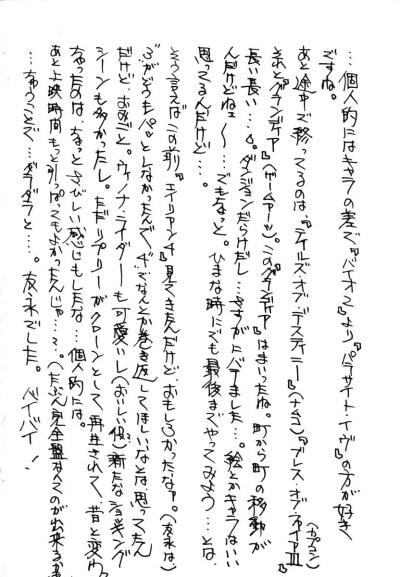 …個人的にはキャラの差で『バイオ2』より『パラサイト・イヴ』の方が好き
ですね。
あと途中で終ってるのは、『テイルズ・オブ・デスティニー』(ナムコ)『ブレス・オブ・ファイアⅢ』(カプコン)
それと『グランディア』(ゲームアーツ)。この『グランディア』はまいったね。町から町の移動が
長い長い…。ダンジョンだらけだし…さすがにバテました…。絵とかキャラはいい
んだけどねェ〜…でもなっと。ひまな時にでも最後までやってみよう…とは、
思ってるんだけど…。
そう言えばこの前『エイリアン4』見てきたんだけど、おもしろかったなァ。(友永は)
3がどうもパッとしなかったんで、4でなんとか巻き返してほしいなとは思ってたん
だけど、おみごと。ウィノナ・ライダーも可愛いし(おいしい役)新たなショッキング
シーンも多かったし。ただリプリーがクローンとして再生されて、昔と変わっ
ちゃったのは、なっとさびしい感じもしたな…個人的には。
あと上映時間もっと引っぱってもよかったんじゃ…?(たぶん完全盤なんてのが出来るか
…ちゅうことで…ダラダラと…。友永でした。バイバイ!